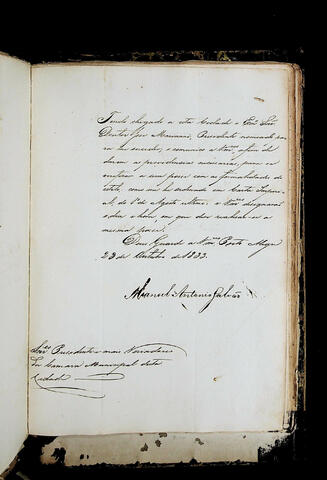 Tendo chegado a esta Cidade o Exmo Snr
Doutor José Marianni, Presidente nomeado pa-
ra me succeder, o communico a Vmces, afim de
darem as providencias necessarias, para se
em a sua posse com as formalidades do
estilo, como me he ordenado em Carta Imperi-
al, de 1º de Agosto, e Vmces designarão
o dia e hora, em que deve realisar-se a
mesma posse.
Deos Guarde a Vmces Porto Alegre
23 de Outubro de 1833.
Manoel Antonio Galvão
Snres Presidente e mais Vereadores
da Camara Municipal desta
Cidade